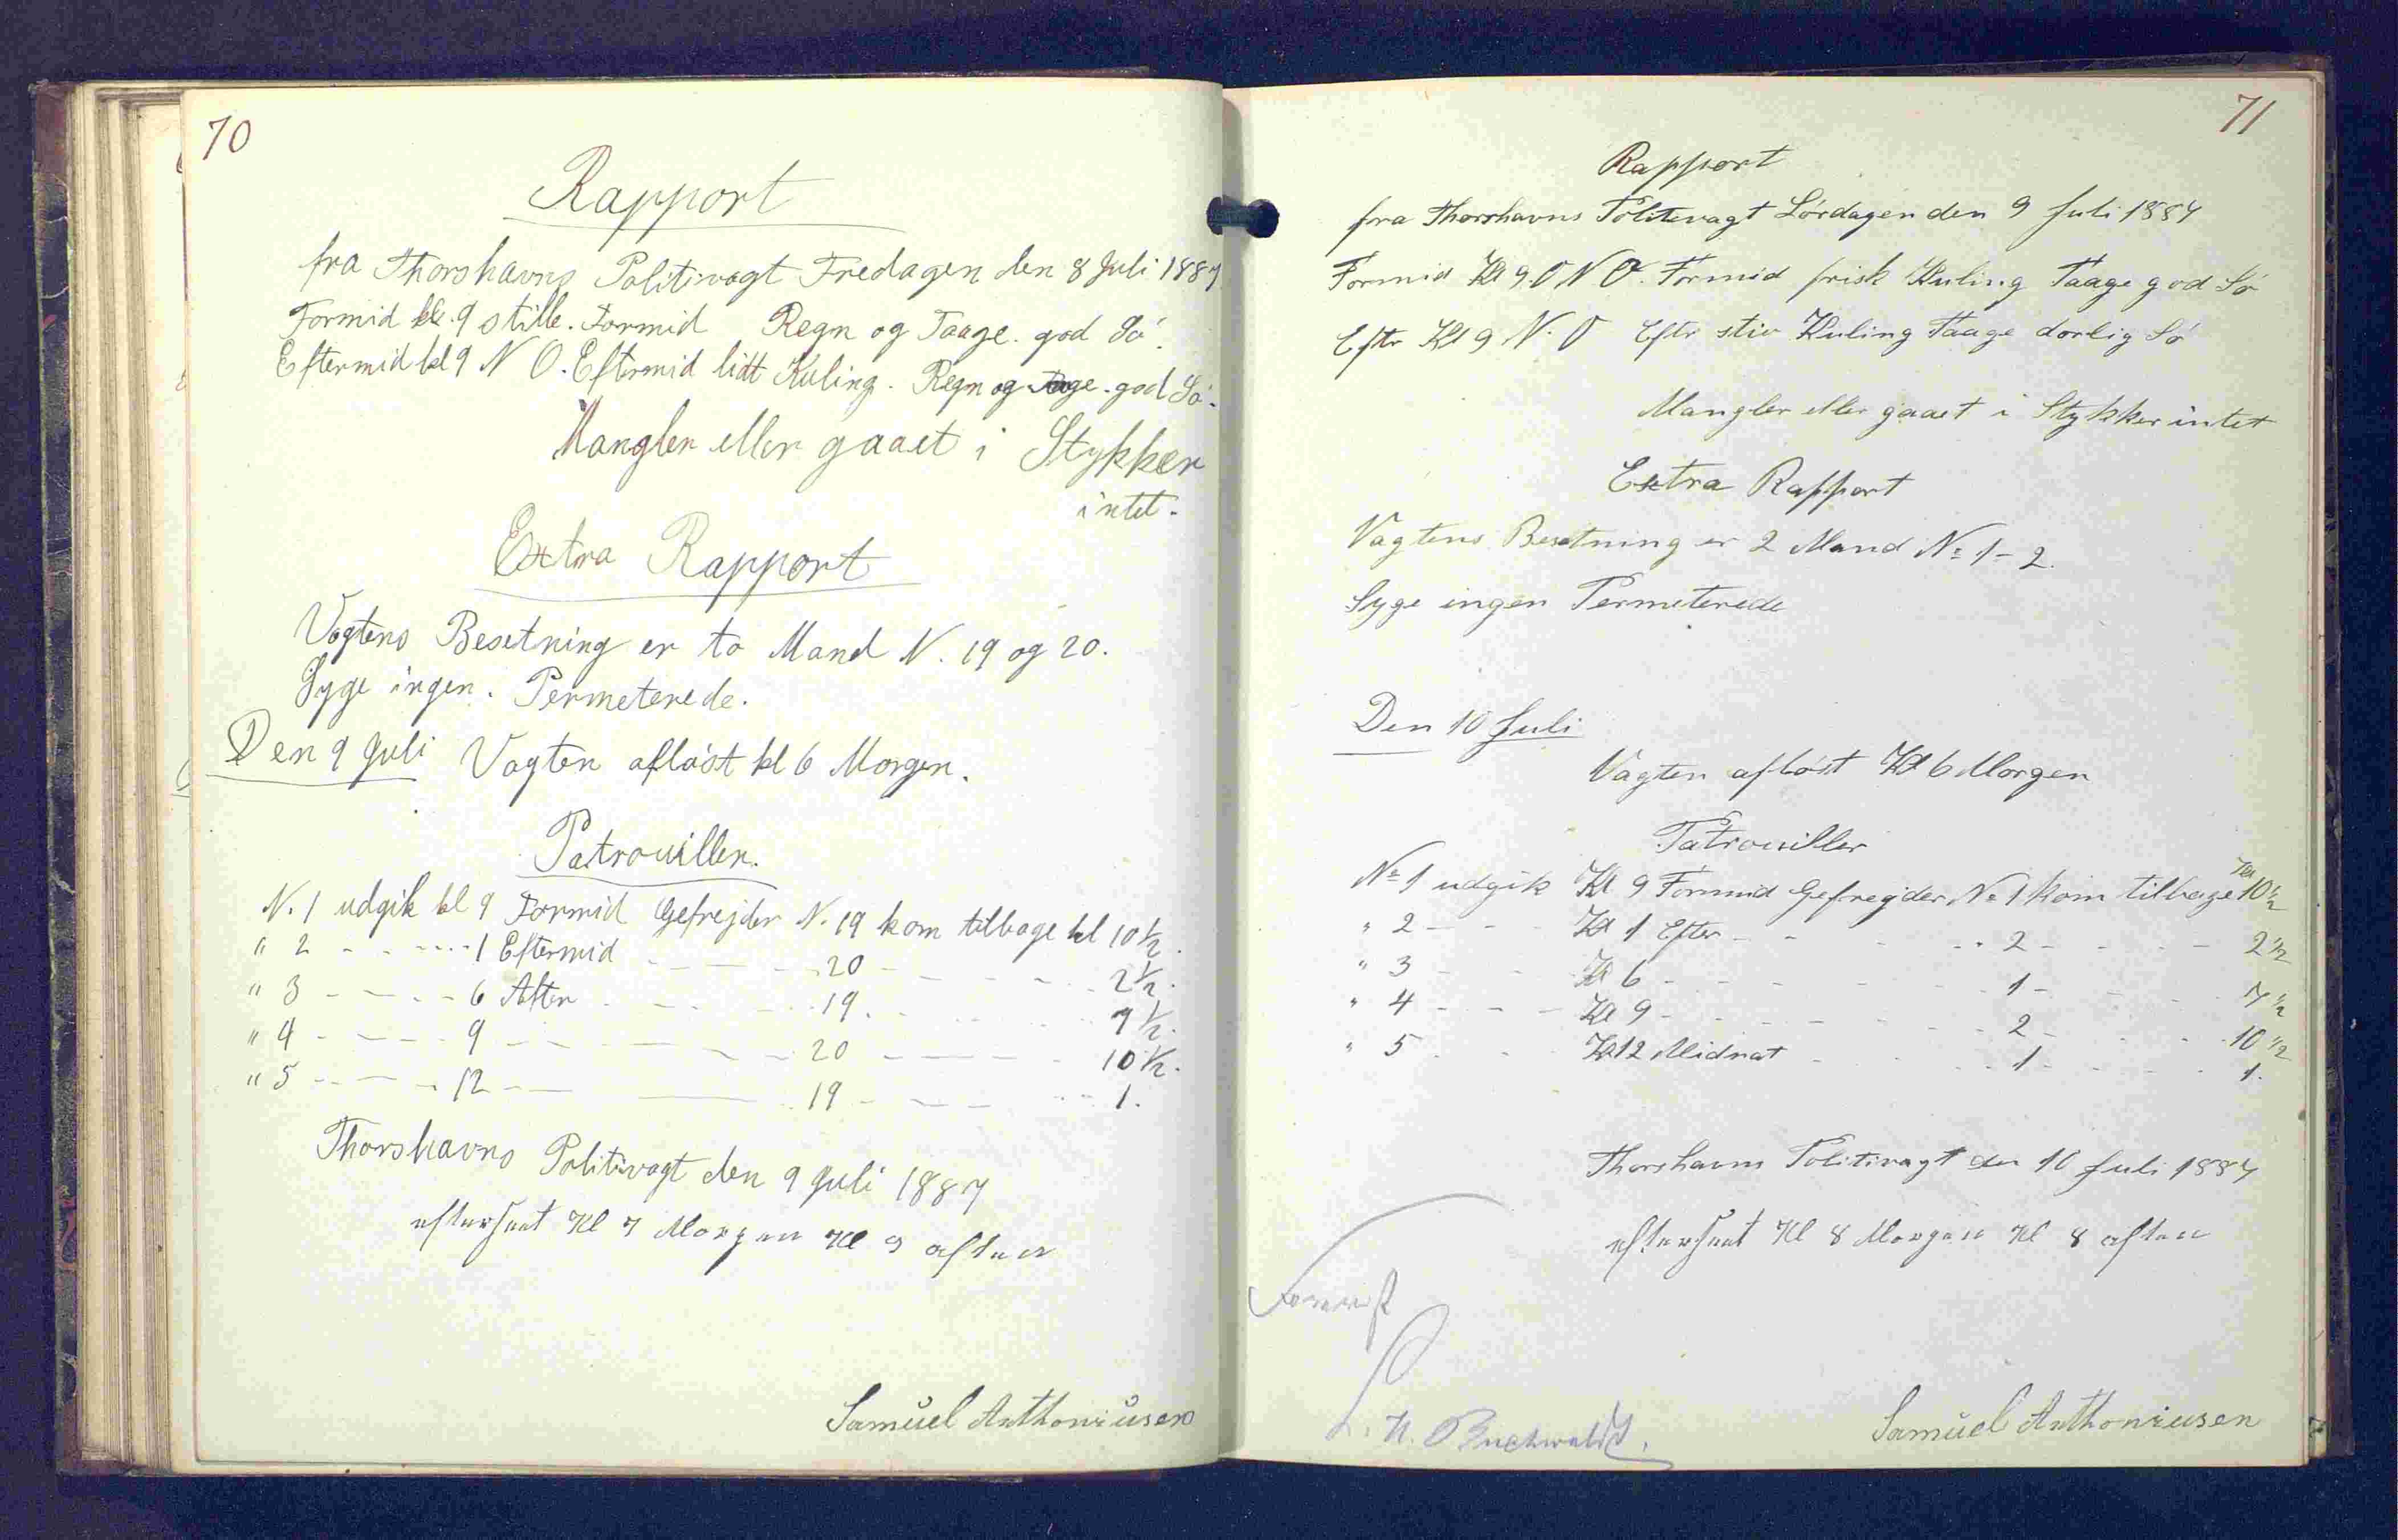 70
Rapport
fra Thorshavns Politivagt Fredagen den 8 Juli 1887
Formid kl. 9 stille. Formid Regn og Taage. god Só.
Eftermid kl 9 N O. Eftermid lidt Kuling. Regn og Tage. god Só.
Mangler eller gaaet i Stykker
intet.
Extra Rapport
Vagtens Besetning er to Mand N. 19 og 20.
Syge ingen. Permeterede.
Den 9 Juli Vagten aflóst kl 6 Morgen.
Patrouiller.
N. 1 udgik kl 9 Formid Gefrejder N. 19 kom tilbage kl 10 1/2.
" 2 - - - - 1 Eftermid - - - 20 - - - - 2 1/2.
" 3 - - - - 6 Aften - - - 19. - - - 7 1/2.
" 4 - - - - 9 - - - - - 20 - - - - 10 1/2.
" 5 - - - - 12 - - - - 19 - - - - 1.
Thorshavns Politivagt den 9 Juli 1887
efterseet Kl 7 Morgen Kl 9 aften
Samuel Anthoniusen
71
Rapport
fra Thorshavns Politevagt Lórdagen den 9 Juli 1887
Formid Kl 9. O N O. Formid frisk Kuling Taage god Só
Eftr Kl 9 N. O Eftr stiv Kuling Taage dorlig Só
Mangler eller gaaet i Stykker intet
Extra Rapport
Vagtens Besetning er 2 Mand No 1 - 2.
Syge ingen Permeterede
Den 10 Juli
Vagten aflóst Kl 6 Morgen
Patrouiller
No 1 udgik Kl 9 Formid Gefregder No 1 kom tilbage Kl 10 1/2
" 2 - - - Kl 1 Efter - - - - 2 - - - - 2 1/2
" 3 - - Kl 6 - - - - - 1 - - - 7 1/2
" 4 - - - Kl 9 - - - - - 2 - - - 10 1/2
" 5 - - Kl 12 Midnat - - - 1 - - - - 1.
Thorshavns Politivagt den 10 Juli 1887
efterseet Kl 8 Morgen Kl 8 aften
Buchwaldt.
Samuel Anthoniusen